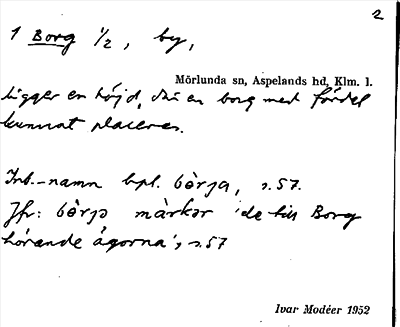 2
1 Borg 1/2, by,
Mörlunda sn, Aspelands hd, Klm. l.
Ligger en höjd, där en borg med fördel
kunnat placeras.
Inb.-namn bpl. bòrja, s. 57.
Jfr: bòrjə màrkər 'de till Borg
hörande ägorna', s. 57
Ivar Modéer 1952